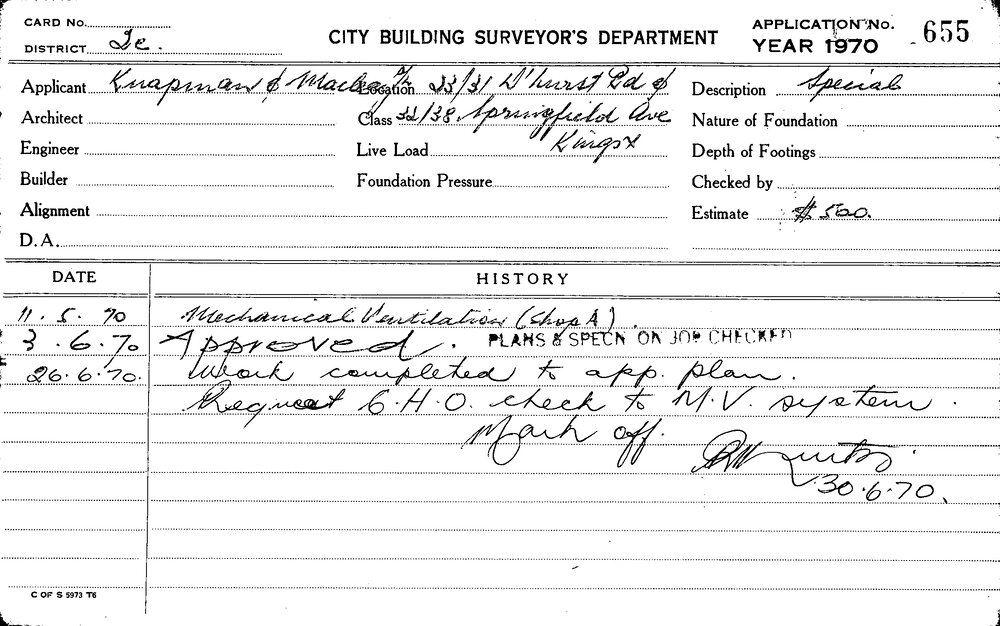 CARD No.
DISTRICT Ie.
CITY BUILDING SURVEYOR'S DEPARTMENT
APPLICATION No. 655
YEAR 1970
Applicant Knapman &
Location 23/31 D'hurst Rd &
Description Special
Architect
Class 32/38 Springfield Ave
Nature of Foundation
Engineer
Live Load Kings X
Depth of Footings
Builder
Foundation Pressure
Checked by
Alignment
Estimate $ 500.
D.A.
DATE
HISTORY
11. 5. 70 Mechanical Ventilation (Shop A).
3. 6. 70 Approved. PLANS & SPECN ON JOB CHECKED
26. 6. 70. Work completed to app. plan.
Request C.H.O. check to M.V. system.
Mark off.
30.6.70.
C OF S 5973 T6